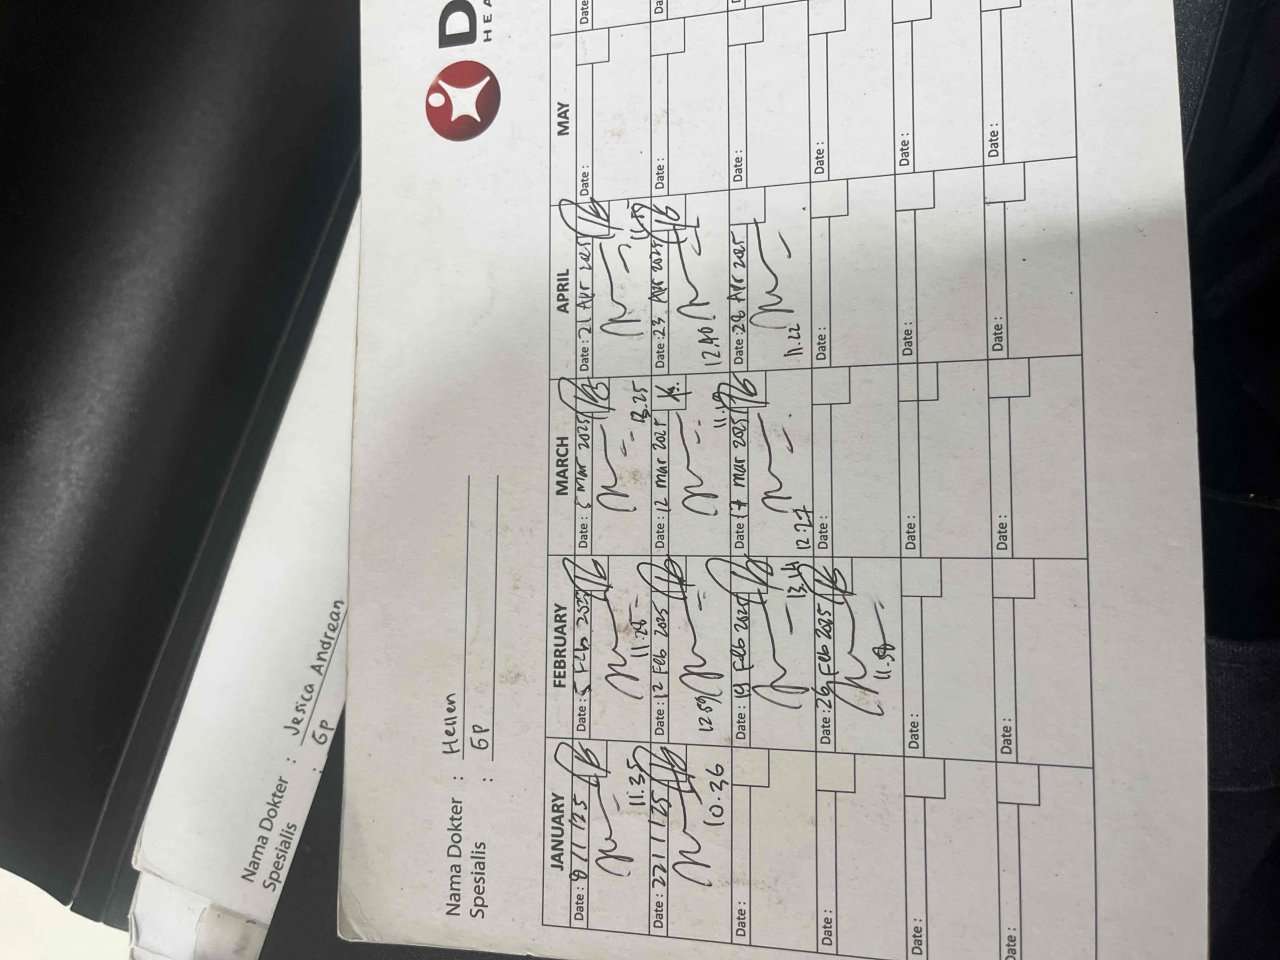 Nama Dokter : Jesica Andrean
Spesialis : Gp
D
HEA
Nama Dokter : Hellen
Spesialis : Gp
JANUARY FEBRUARY MARCH APRIL MAY
Date : 8/1/25 Date : 5 Feb 2025 Date : 5 Mar 2025 Date : 21 Apr 2025 Date : Date
11.35 11.28 13.25
Date : 22/1/25 Date : 12 Feb 2025 Date : 12 mar 2025 Date : 23 Apr 2025 Date : Da
10.36 12.59 12.40
Date : Date : 19 Feb 2025 Date : 17 mar 2025 Date : 28 Apr 2025 Date :
13.14 12.27 11.22
Date : Date : 26 Feb 2025 Date : Date : Date :
11.58
Date : Date : Date : Date : Date :
Date : Date : Date : Date : Date :